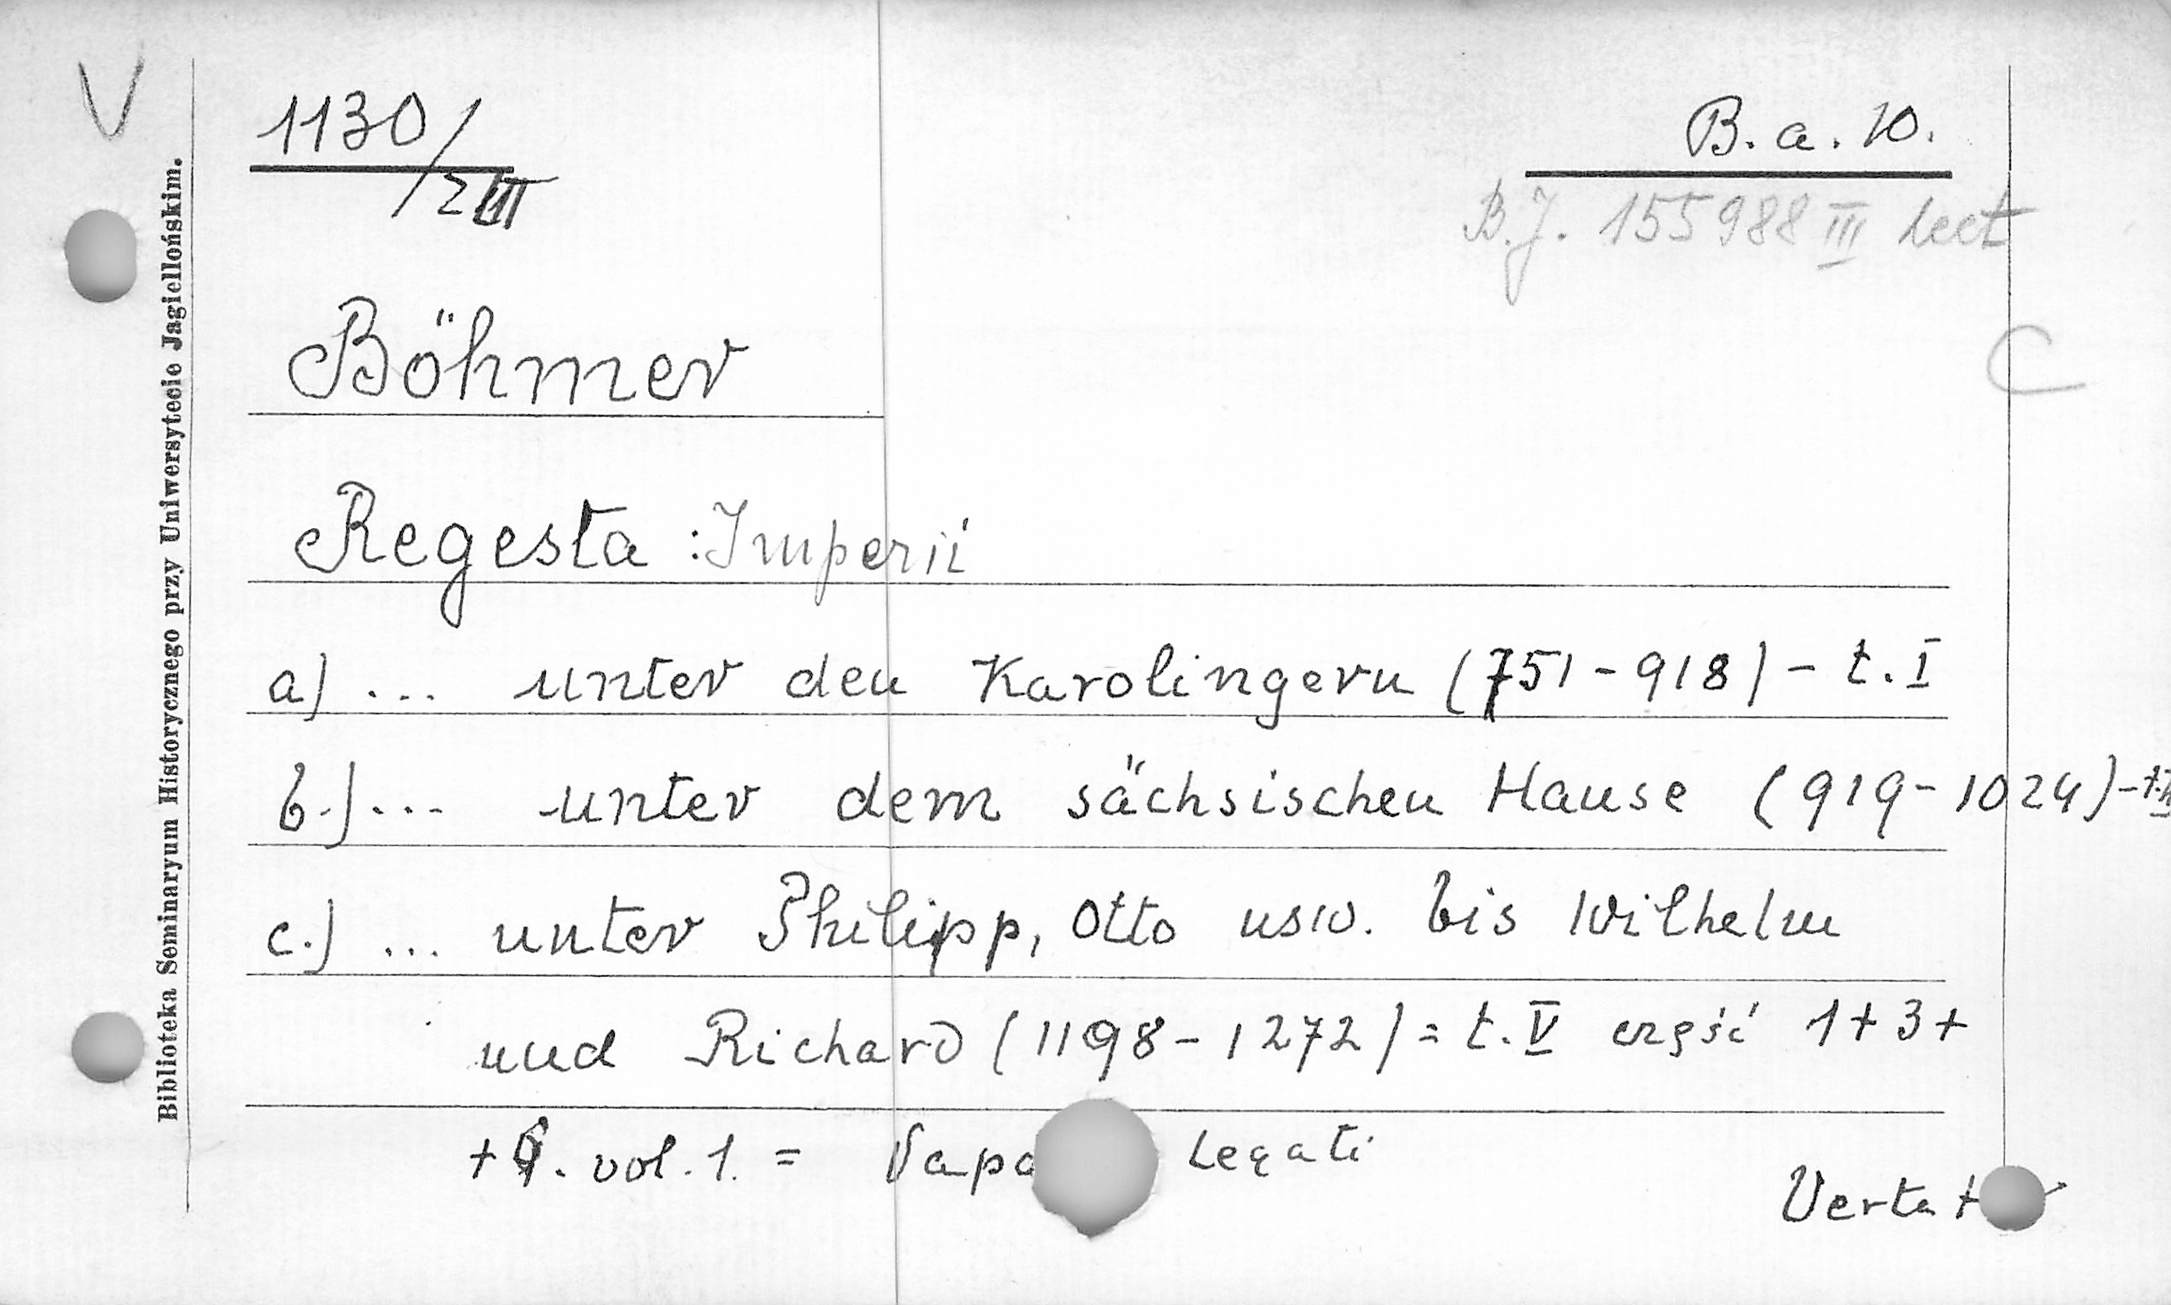 V
1130/ZIII
B. a. 10.
B.J. 155988 III lect
Böhmer
C
Regesta : Imperii
a) ... unter den Karolingern (751-918) - t. I
b.) ... unter dem sächsischen Hause (919-1024) - t. II
c.) ... unter Philipp, Otto usw. bis Wilhelm
und Richard (1198-1272) = t. V część 1+3+
+ . vol. 1. = Legati
Bibljoteka Seminaryum Historycznego przy Uniwersytecie Jagiellońskim.